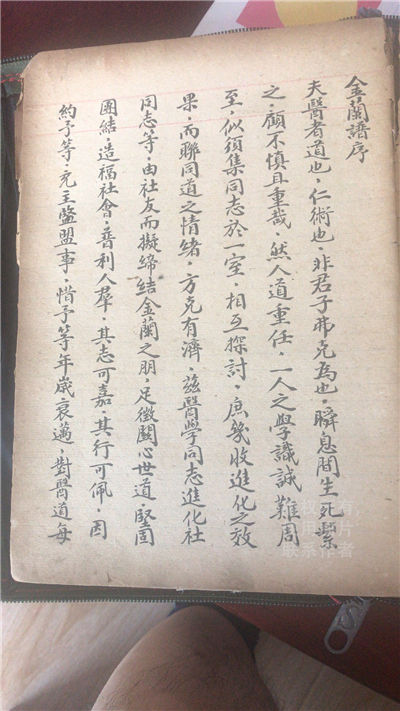 金蘭譜序
夫醫者道也，仁術也，非君子弗克為也，瞬息間生死繫
之，顧不慎且重哉，然人道重任，一人之學識誠難周
至，似須集同志於一室，相互探討，庶幾收進化之效
果，而聯同道之情緒，方克有濟，茲醫學同志進化社
同志等，由社友而擬締結金蘭之朋，足徵關心世道，堅固
團結，造福社會，普利人羣，其志可嘉，其行可佩，因
約予等，充主盬盟事，惜予等年歲衰邁，對醫道每